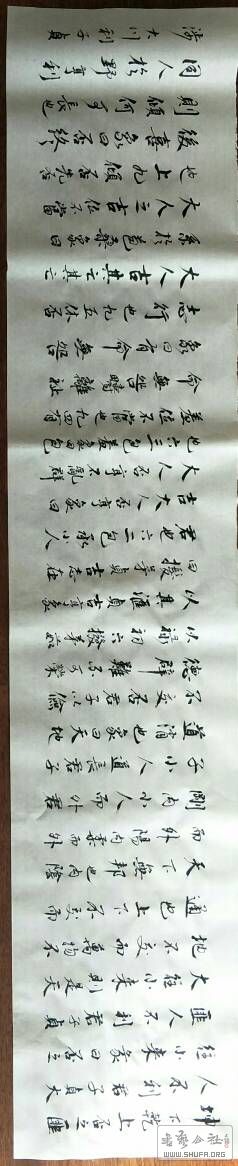 坤下乾上否之匪
人不利君子貞大
往小來彖曰否之
匪人不利君子貞
大往小來則是天
地不交而萬物不
通也上下不交而
天下無邦也內陰
而外陽內柔而外
剛內小人而外君
子小人道長君子
道消也象曰天地
不交否君子以儉
德辟難不可榮
以祿初六拔茅茹
以其彙貞吉亨象
曰拔茅貞吉志在
君也六二包承小人
吉大人否亨象曰
大人否亨不亂群
也六三包羞象曰包
羞位不當也九四有
命無咎疇離祉
象曰有命無咎
志行也九五休否
大人吉其亡其亡
系於苞桑象曰
大人之吉位當
也上九傾否先否
後喜象曰否終
則傾何可長也
同人於野亨利
涉大川利子貞
书法公社
WWW.SHUFA.ORG